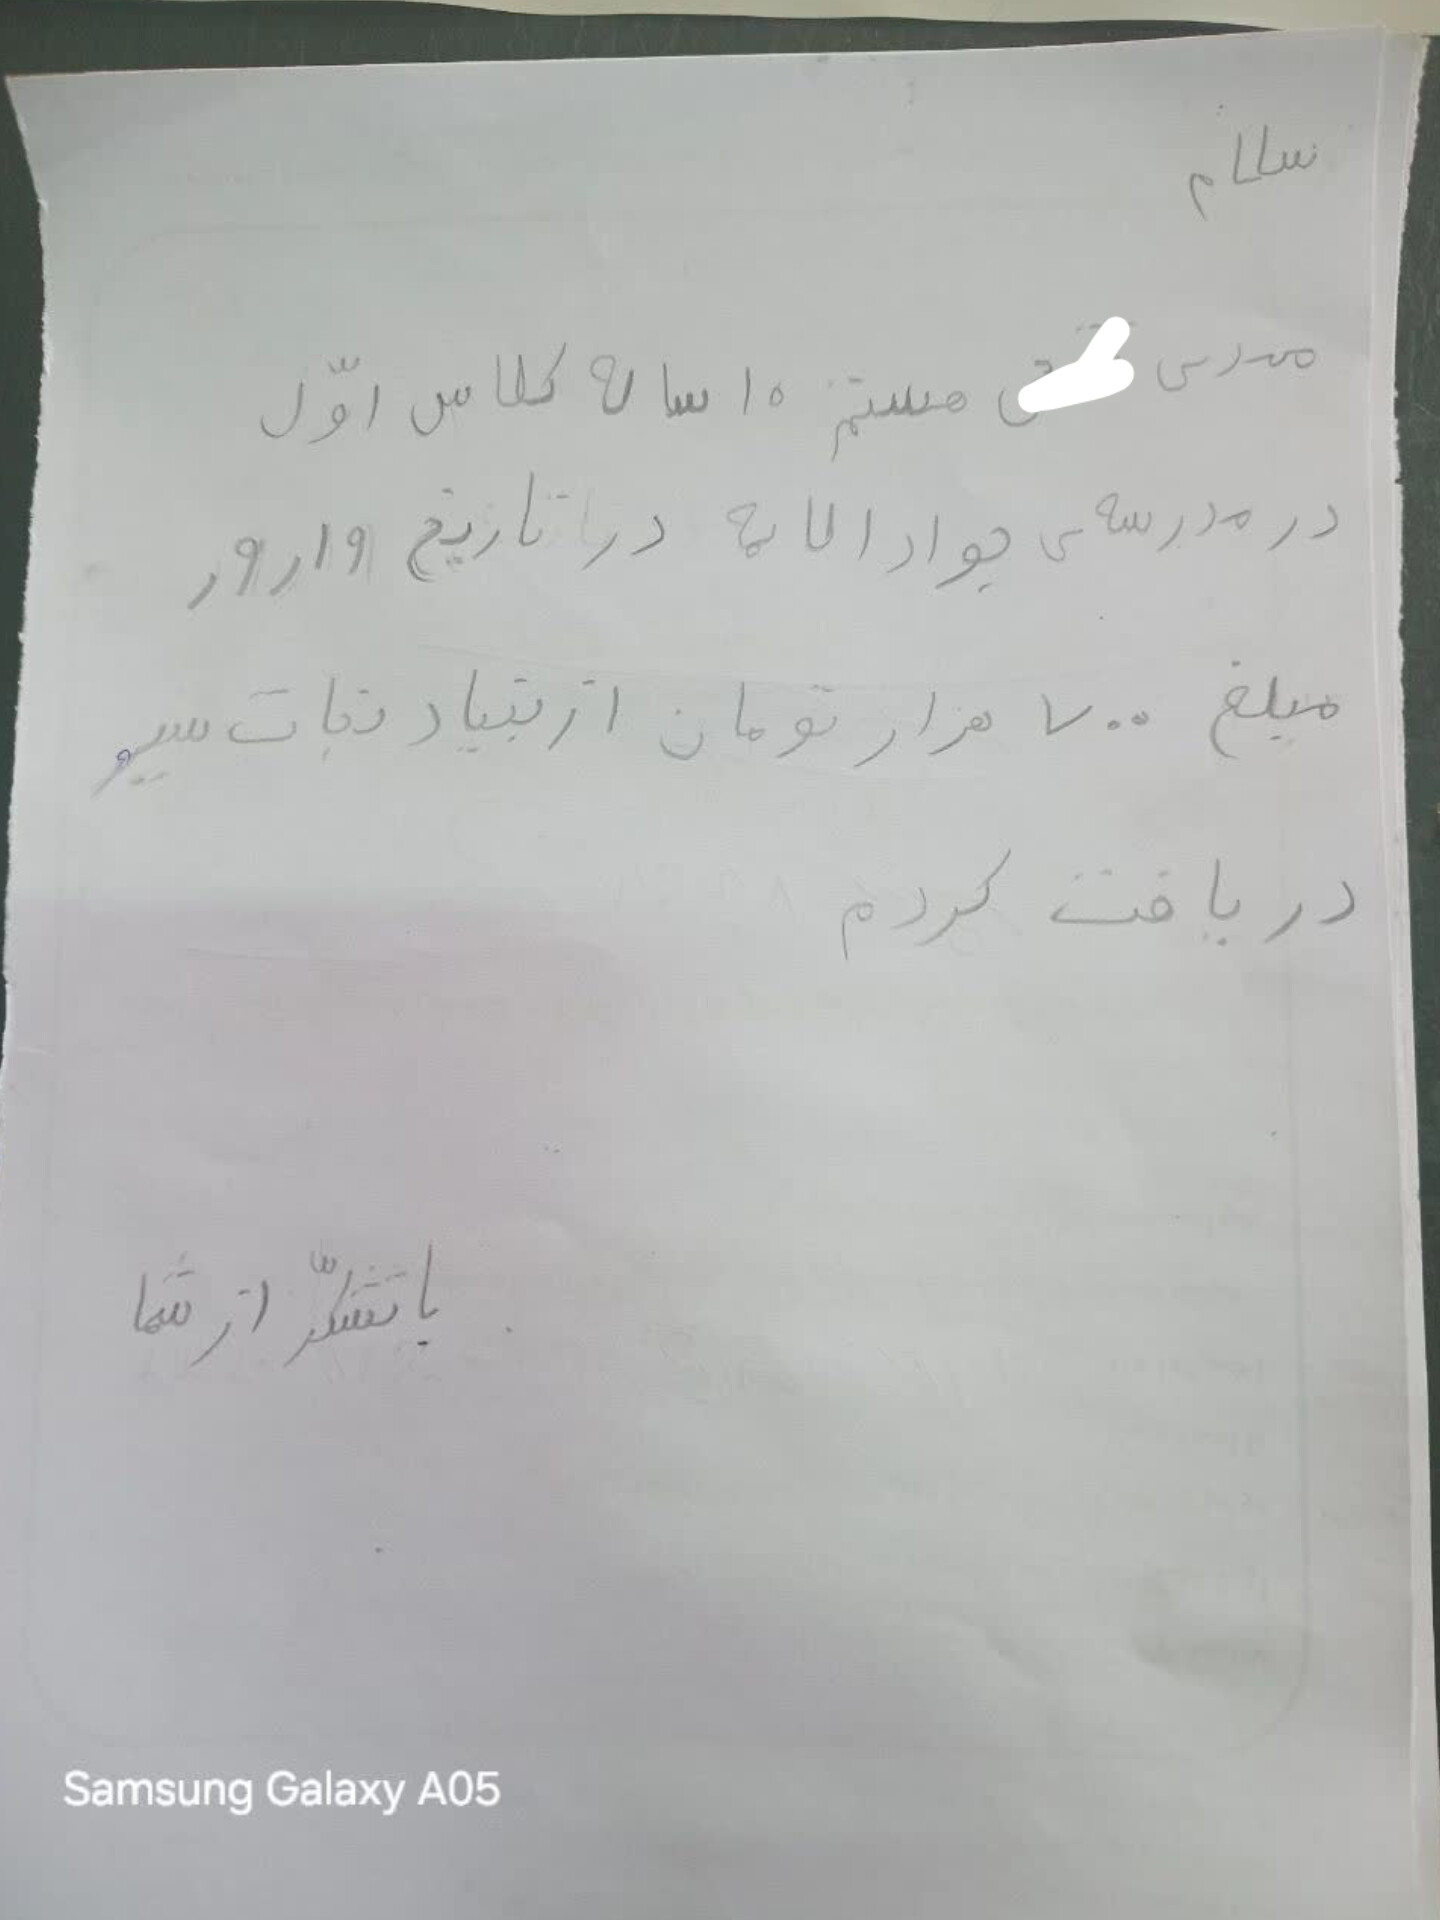 سلام
هستم ۱۰ ساله کلاس اوّل
در مدرسه‌ی جواد در تاریخ
مبلغ ۷۰۰ هزار تومان از بنیاد نبات
دریافت کردم
با تشکّر از شما
Samsung Galaxy A05